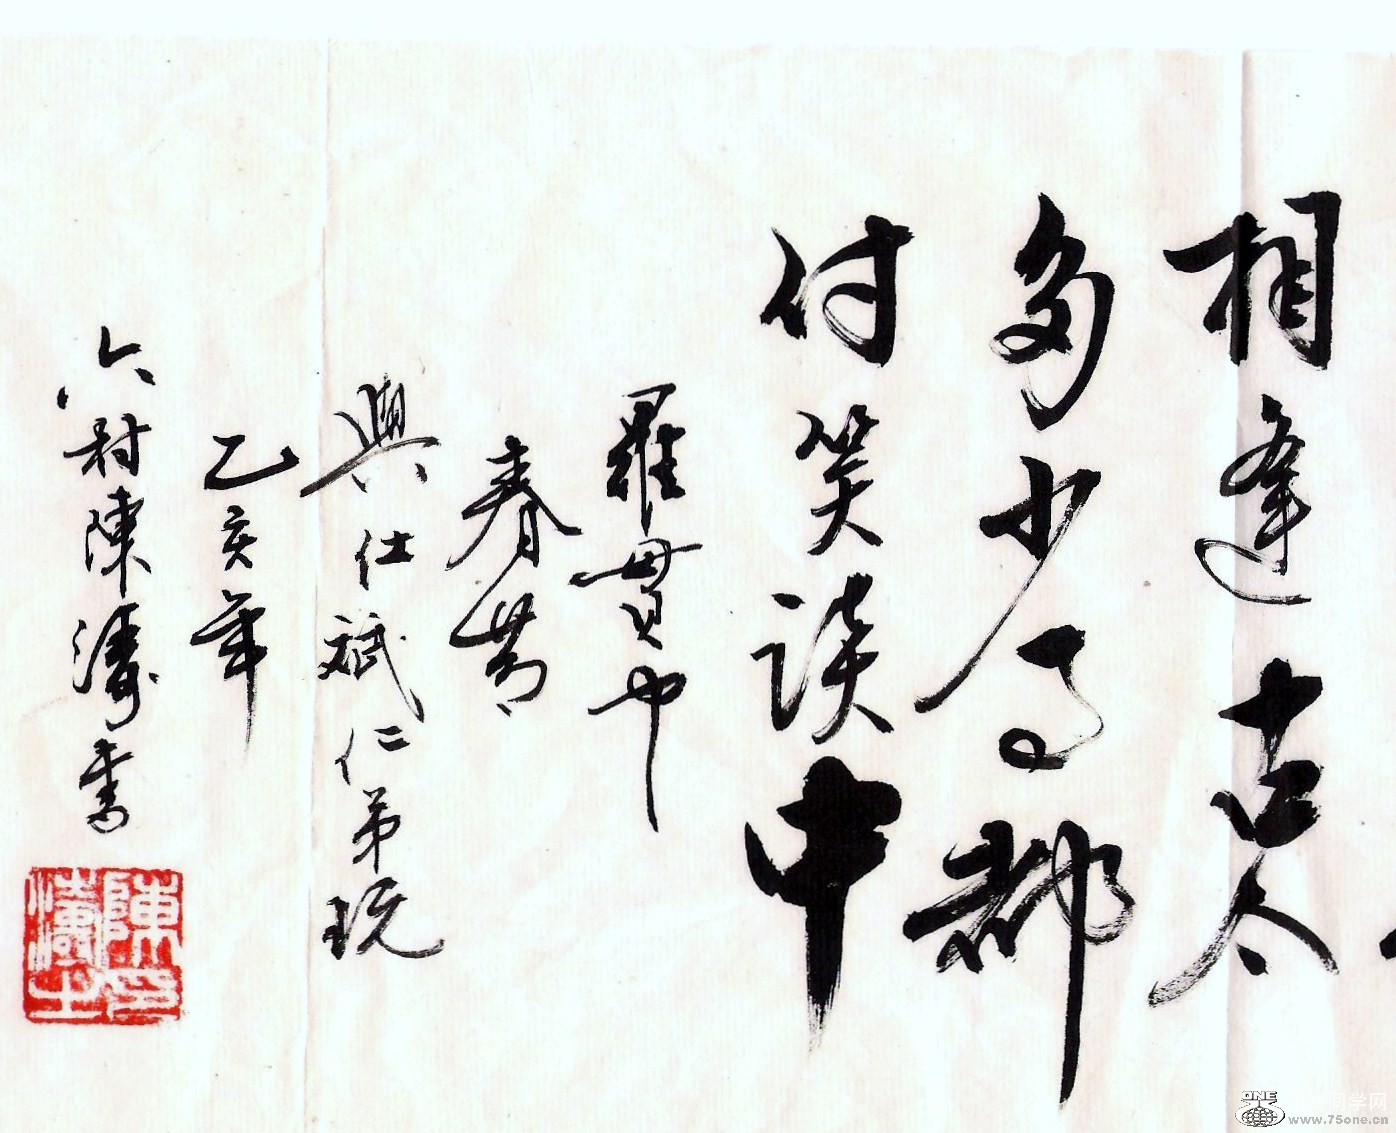 相逢古今
多少事都
付笑談中
羅貫中
春
與仕斌仁弟玩
乙亥年
六村陳濤書
陳濤之印
ONE
同学网
www.75one.cn